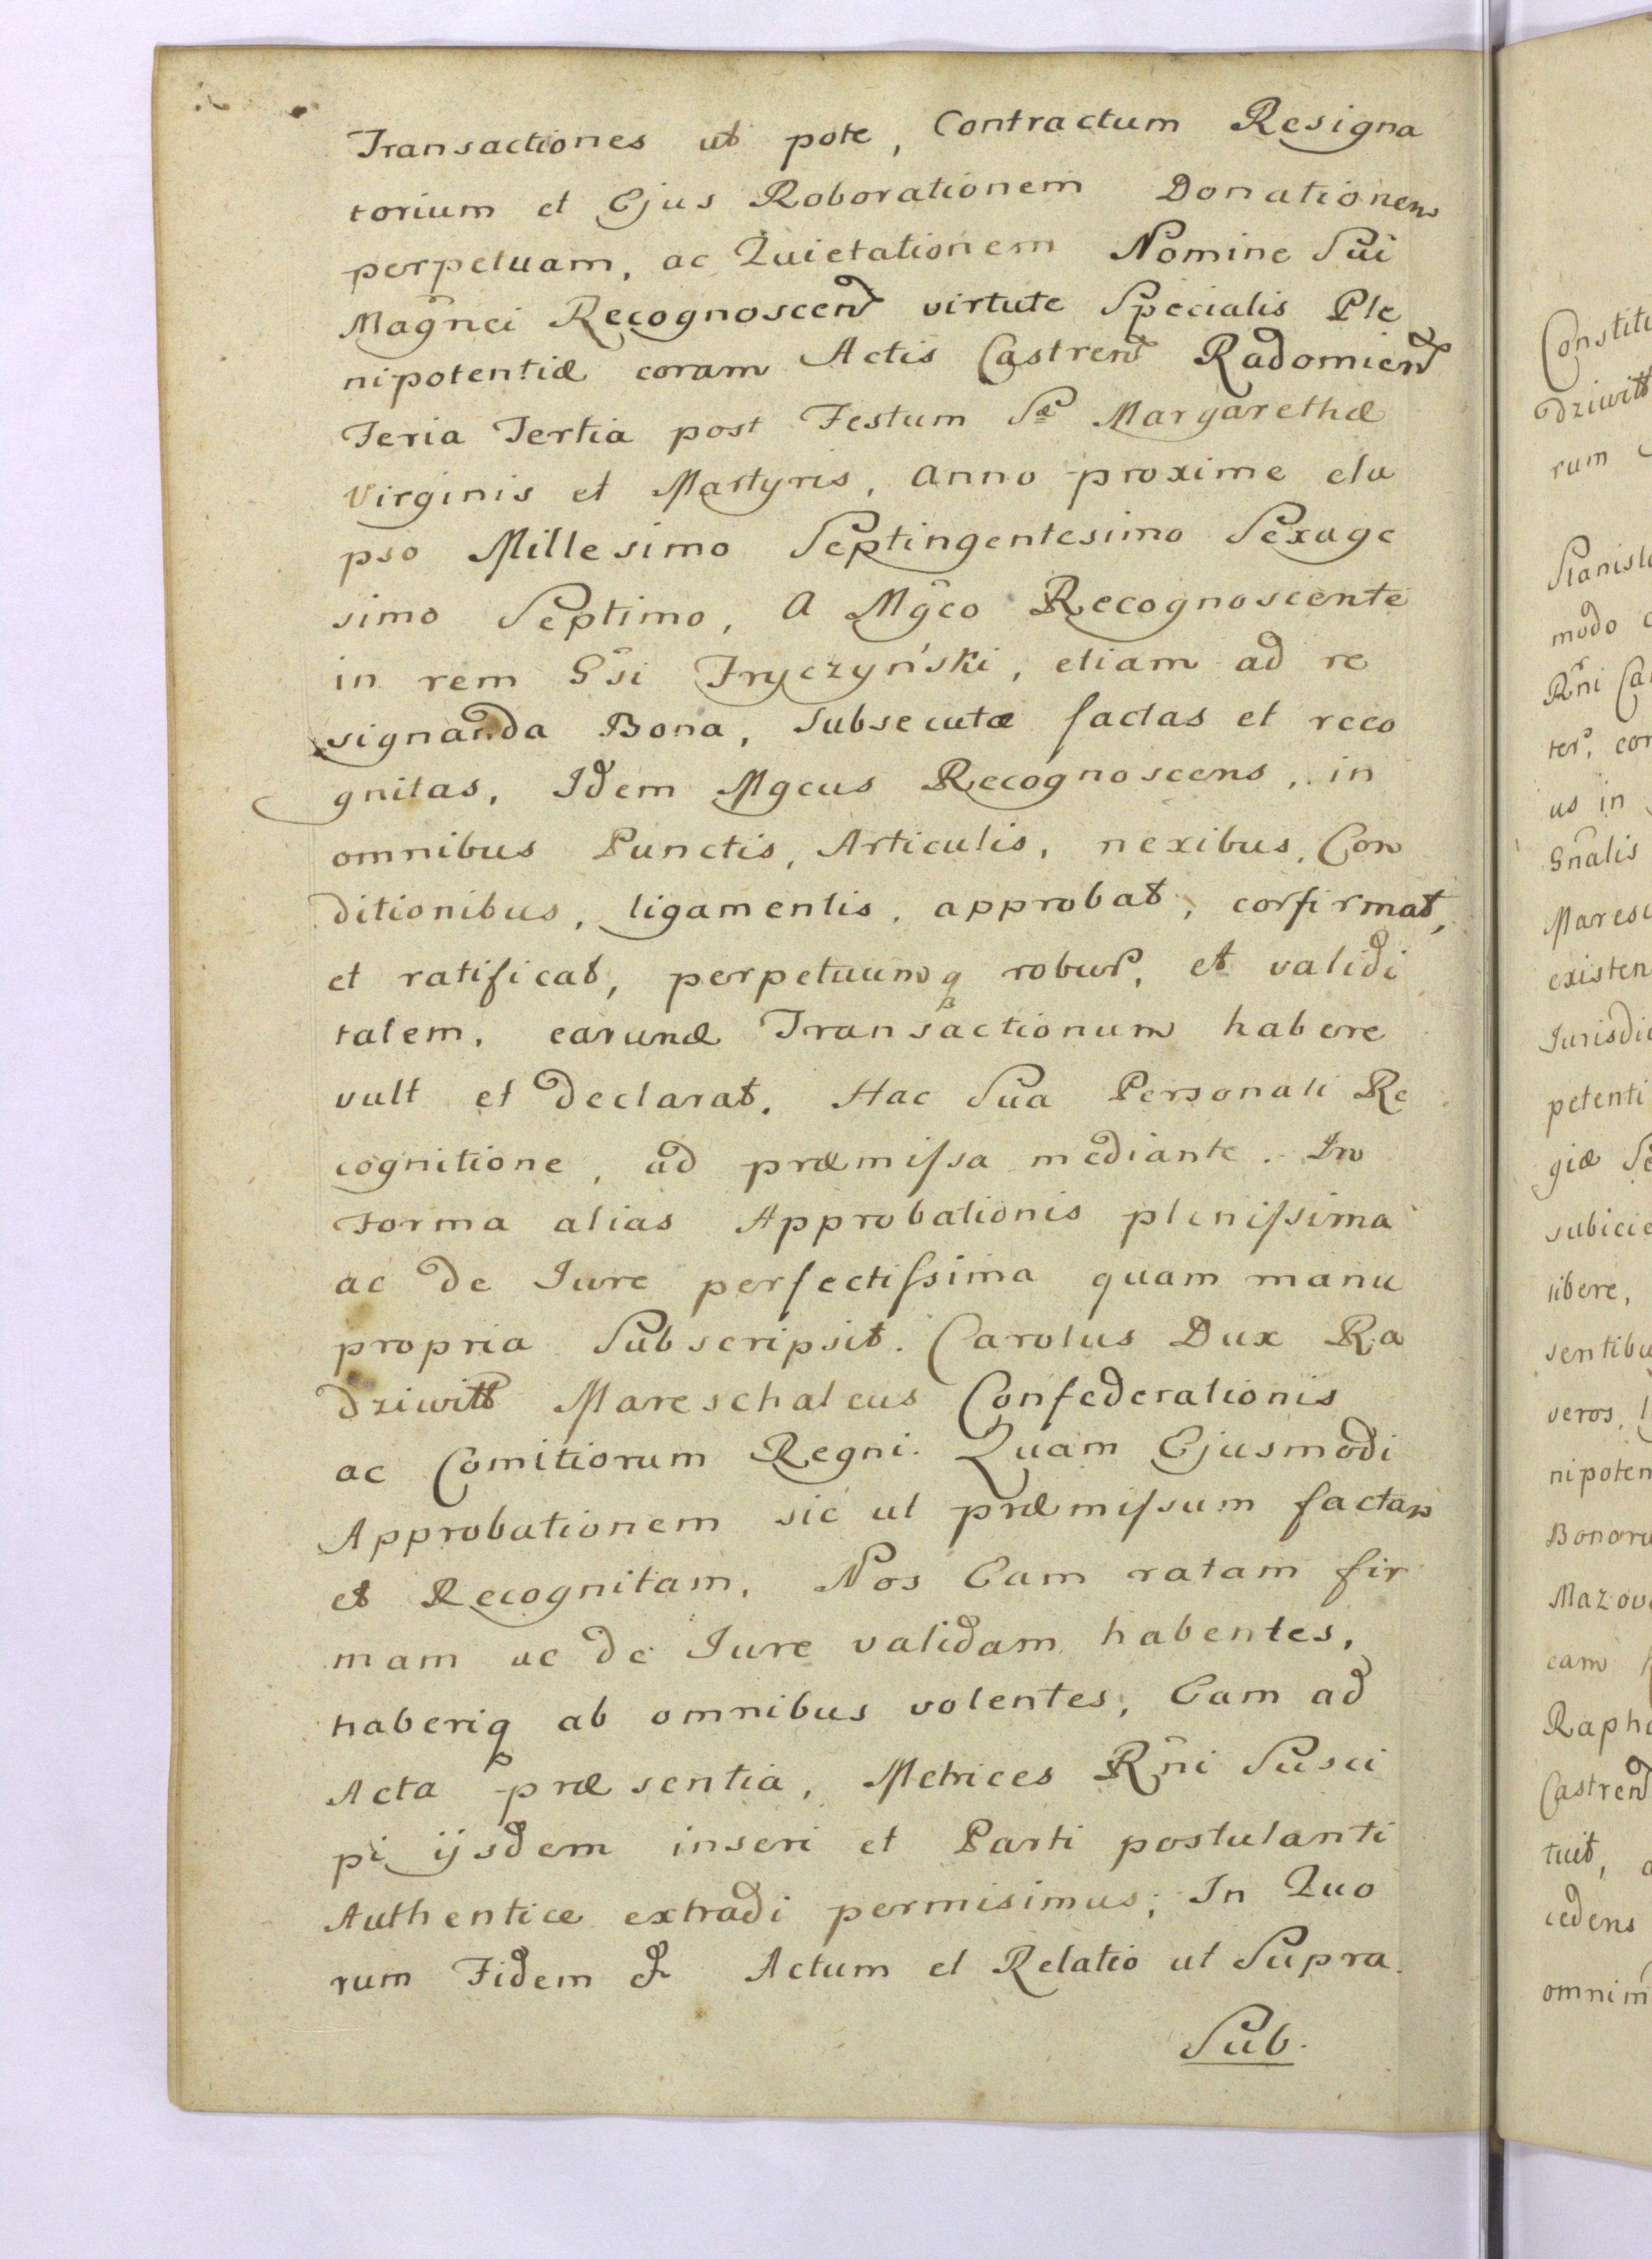 Transactiones ut pote, Contractum Resigna
torium et Ejus Roborationem Donationem
perpetuam, ac Quietationem Nomine Sui
Magnci Recognoscen virtute Specialis Ple
nipotentiæ coram Actis Castren Radomien
Feria Tertia post Festum Sæ Margarethæ
Virginis et Martyris, Anno proxime ela
pso Millesimo Septingentesimo Sexage
simo Septimo, A Mgco Recognoscente
in rem Gsi Fryczyński, etiam ad re
signanda Bona, Subsecutæ factas et reco
gnitas, Idem Mgcus Recognoscens, in
omnibus Punctis, Articulis, nexibus, Con
ditionibus, ligamentis, approbat, confirmat,
et ratificat, perpetuumq robur, et validi
tatem, earund Transactionum habere
vult et declarat. Hac Sua Personali Re
cognitione, ad præmissa mediante. In
Forma alias Approbationis plenissima
ac de Jure perfectissima quam manu
propria Subscripsit. Carolus Dux Ra
dziwitt Mareschalcus Confederationis
ac Comitiorum Regni. Quam Ejusmodi
Approbationem sic ut præmissum factam
et Recognitam, Nos Eam ratam fir
mam ac de Jure validam habentes,
haberiq ab omnibus volentes, Eam ad
Acta præsentia, Metrices Rni Susci
pi ijsdem inseri et Parti postulanti
Authentice extradi permisimus; In Quo
rum Fidem & Actum et Relatio ut Supra.
Sub.
Constitu
dziwitt
rum
Stanisla
modo
Rni Ca
ter, cor
us in
Gnalis
Maresc
existen
Jurisdic
petenti
giæ Se
subicie
libere,
sentibu
veros,
nipoten
Bonoru
Mazov
eam
Rapha
Castren
tuit,
cedens
omnim